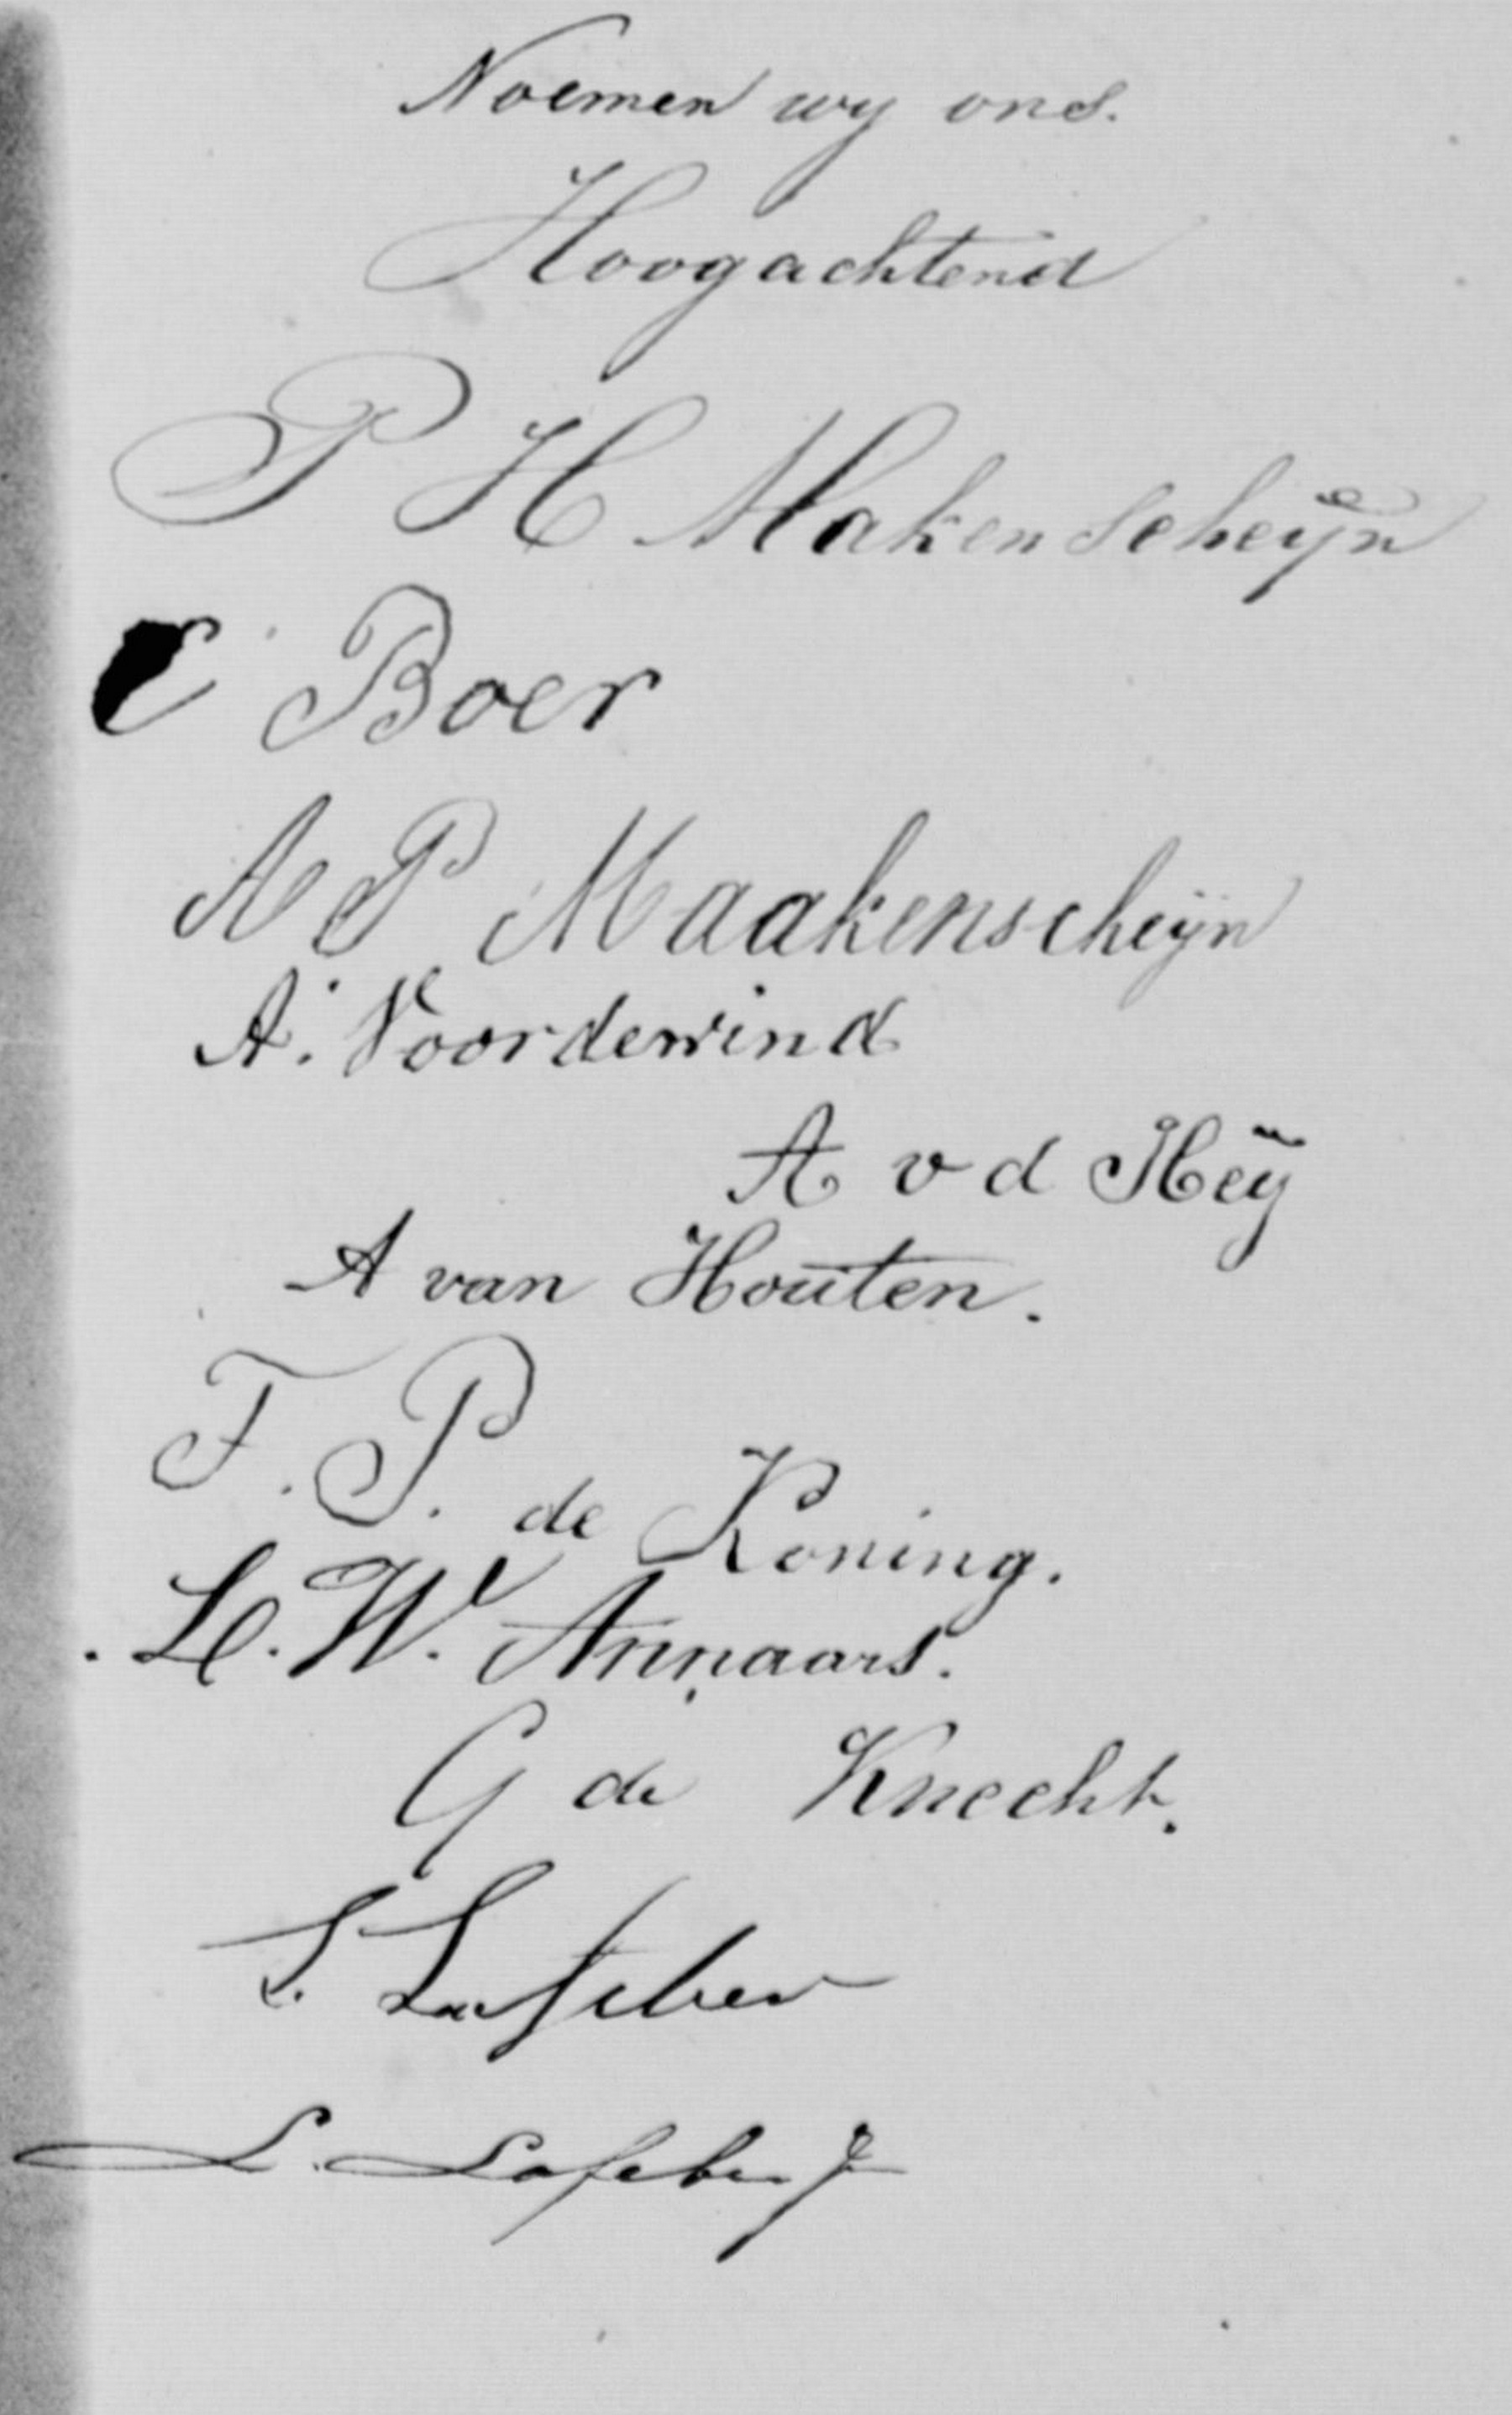 Noemen wy ons.
Hoogachtend
P H Makenscheijn
C Boer
A P Maakenscheijn
A. Voordewind
A v d Heij
A van Houten.
F. P. de Koning.
L. W. Annaars.
G de Knecht.
S. Lafeber
L. Lafeber J